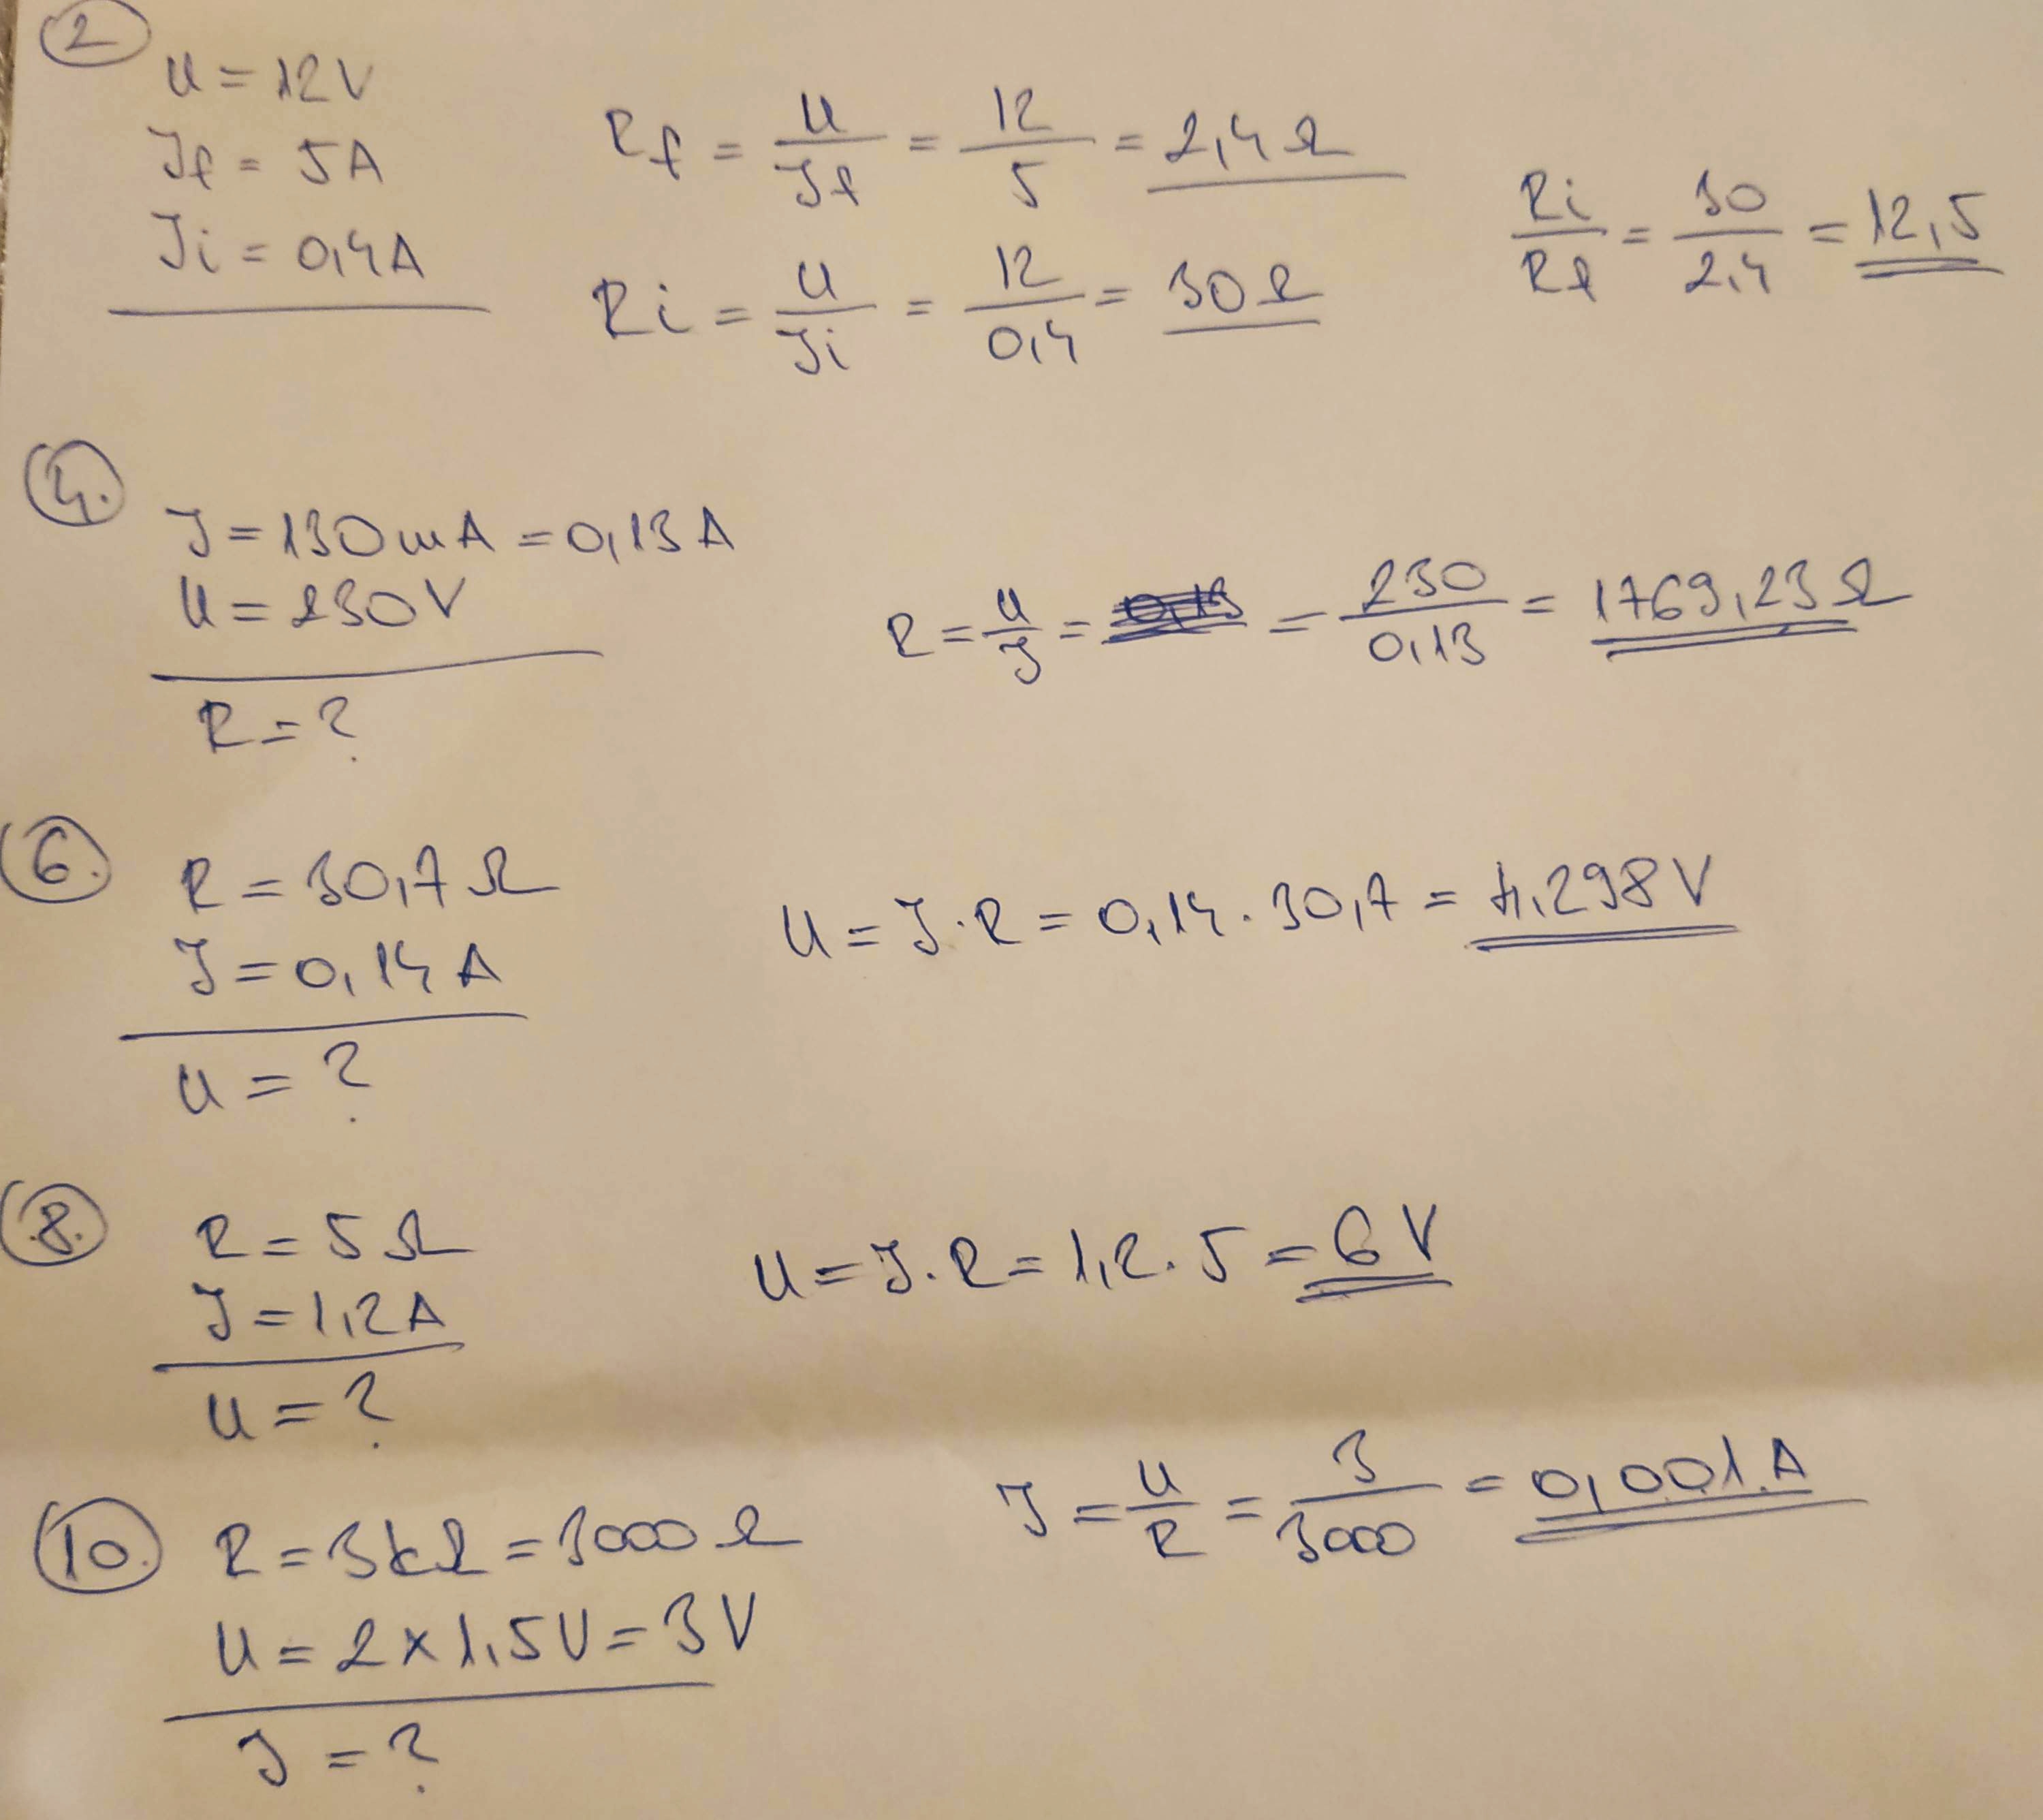 2
U = 12V
If = 5A
Ii = 0,4A
Rf = U/If = 12/5 = 2,4Ω
Ri = U/Ii = 12/0,4 = 30Ω
Ri/Rf = 30/2,4 = 12,5
4.
I = 130mA = 0,13A
U = 230V
R = ?
R = U/I = = 230/0,13 = 1769,23Ω
6.
R = 30,7Ω
I = 0,14A
U = ?
U = I·R = 0,14·30,7 = 4,298V
8.
R = 5Ω
I = 1,2A
U = ?
U = I·R = 1,2·5 = 6V
10.
R = 3kΩ = 3000Ω
U = 2x1,5V = 3V
I = ?
I = U/R = 3/3000 = 0,001A